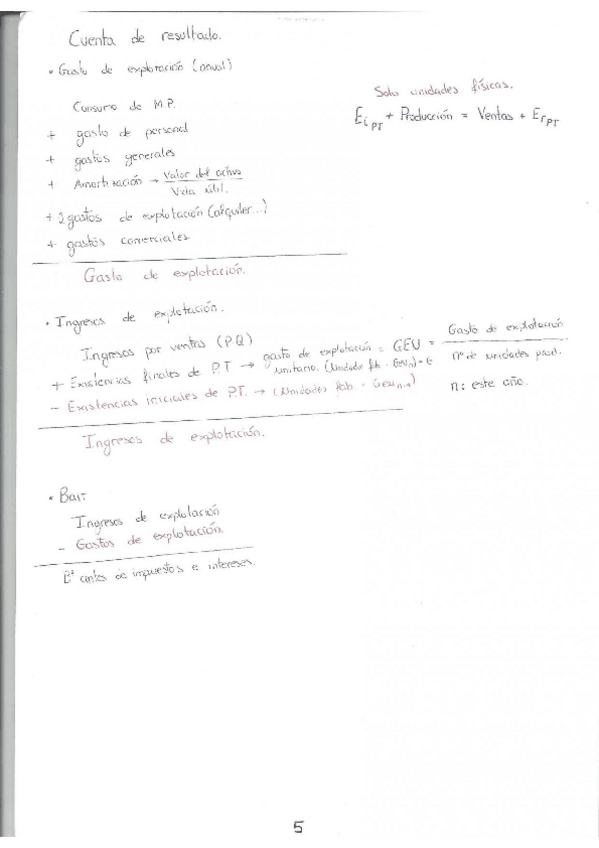 Cuenta de resultado.
• Gasto de explotación (anual)
Solo unidades físicas.
Ei PT + Producción = Ventas + Ef PT
Consumo de M.P.
+ gasto de personal
+ gastos generales
+ Amortización → Valor del activo
Vida útil.
+ 2 gastos de explotación (alquiler...)
+ gastos comerciales
Gasto de explotación.
• Ingresos de explotación.
Ingresos por ventas (PQ)
+ Existencias finales de P.T → gasto de explotación unitario. (Unidades fab · Geun) = GEU = Gasto de explotación
nº de unidades prod.
- Existencias iniciales de P.T. → (Unidades fab · Geun-1)
n: este año.
Ingresos de explotación.
• Bait
Ingresos de explotación
- Gastos de explotación.
Bº antes de impuestos e intereses
5